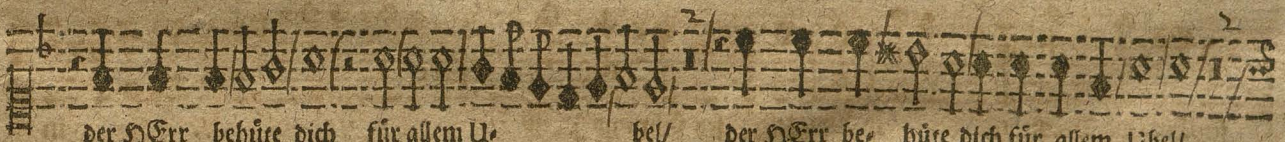 2 2
der HErr behüte dich für allem U- bel/ der HErr be- hüte dich für allem Ubel/